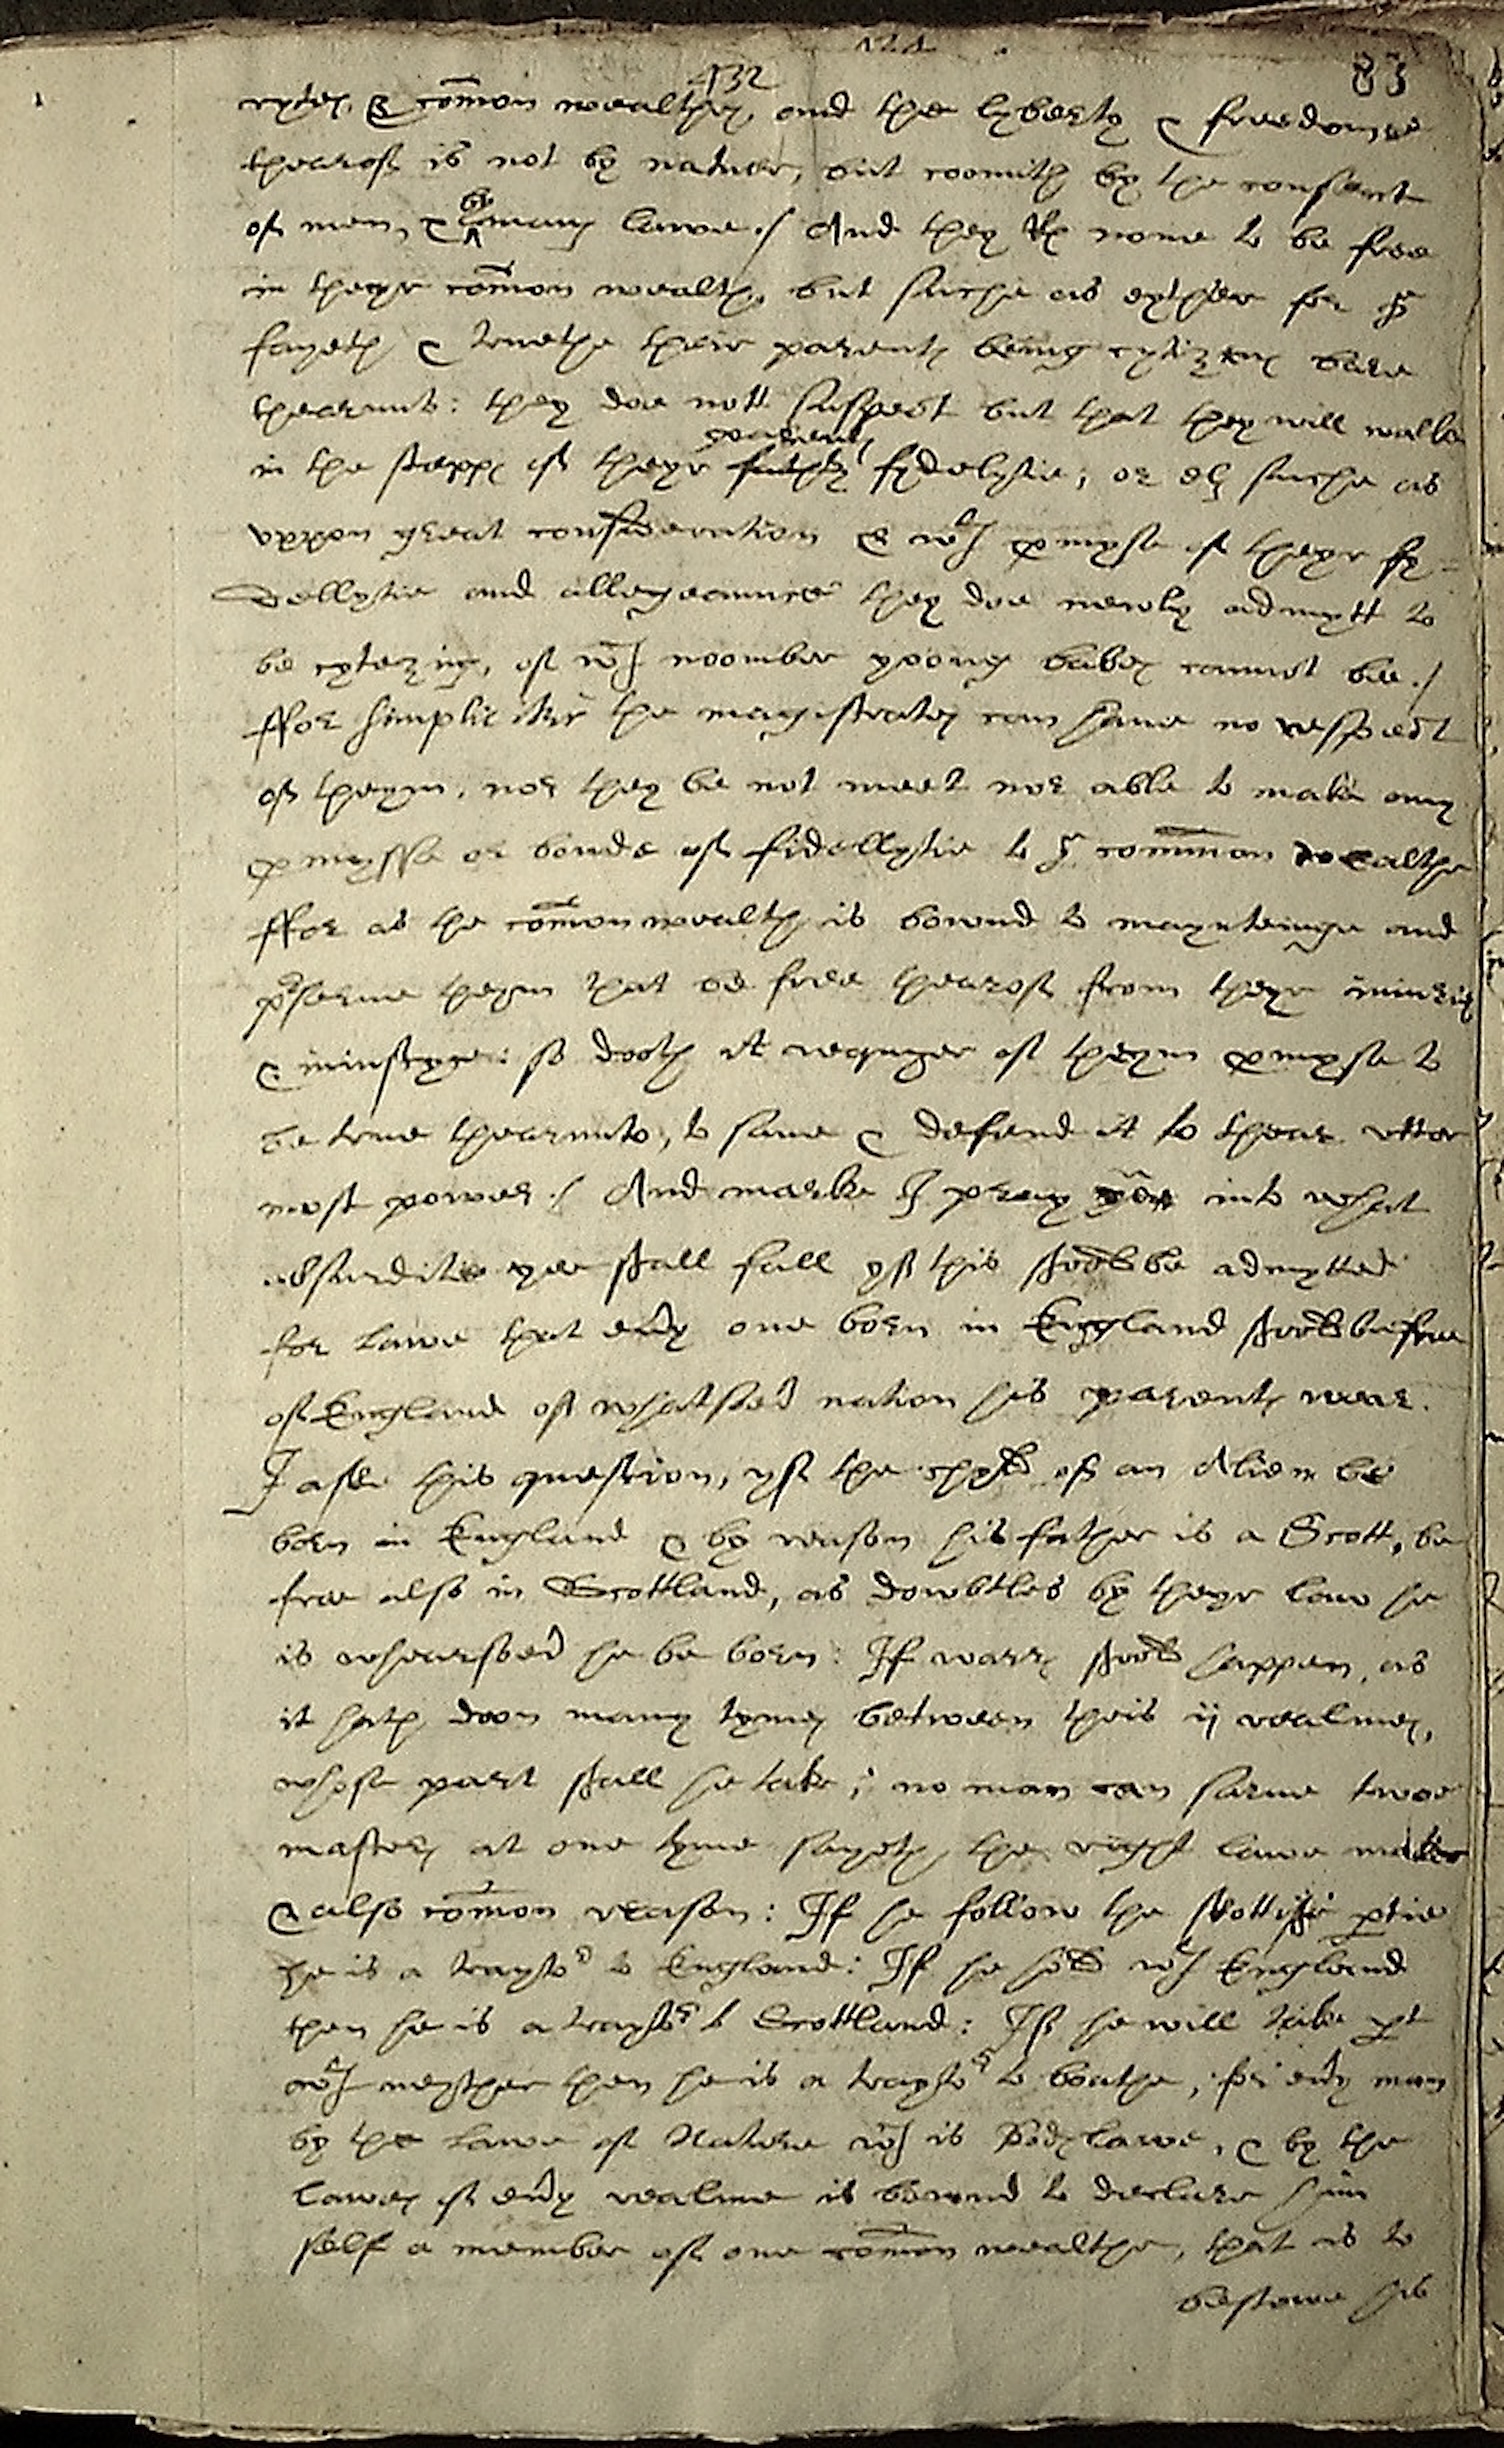 432
83
cytes, & com̄on wealthes, and the lyberty & freedomee
thearof is not by nature, but coomith by the consent
of men, & by mans lawe ./ And they  none to be free
in theyr com̄on wealth, but suche as eyther for ye
fayeth & truethe their parents being cytizens bare
thearunto: they doe nott suspect but that they will walke
in the stepps of theyr parents fydelytie; or els suche as
uppon great consideration & wth pmyse of theyr fy=
dellytie and allegeaunce they doe newly admytt to
be cytezins, of wch noomber yoong babes cannot bee ./
ffor simplicitie the magistrates can have no respect
of theym, nor they be not meet nor able to make any
pmysse or bonde of fidellytie to ye com̄mon wealthe
ffor as the com̄on wealth is bownd to maynteigne and
pserue theym that be free thearof from theyr iniuries
& iniustyce: so dooth it requyer of theym pmyse to
be true thearunto, to saue & defend it to thear utter
most power ./ And marke I pray you into what
absurditie yee shall fall yf this shold be admytted
for lawe that eùy one born in England shold be free
of England of whatsoeù nation his parents wear.
I aske this question, yf the chyld of an Alien be
born in England & by reason his father is a Scott, be
free also in Scottland, as dowbtles by theyr law he
is whearsoeù he be born: If warrs shold happen, as
it hath doon many tymes between theis ij realmes,
whose part shall he take; no man can sarue twoe
masters at one tyme sayeth the right lawe maker
& also com̄on reason: If he follow the skottishe ptie
he is a traytor to England: If he hold wth England
then he is a traytor to Scottland: If he will take pt
wth neyther then he is a traytor to boathe, for eùy man
by the lawe of Nature wch is Gods lawe, & by the
lawes of eùy realme is bownd to declare him
self a member of one com̄on wealthe, that is to
bestowe his